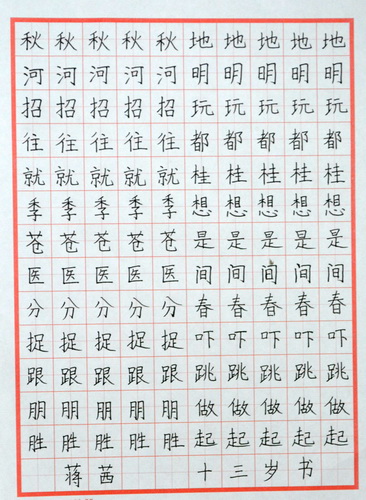 秋秋秋秋秋地地地地地
河河河河河明明明明明
招招招招招玩玩玩玩玩
往往往往往都都都都都
就就就就就桂桂桂桂桂
季季季季季想想想想想
苍苍苍苍苍是是是是是
医医医医医间间间间间
分分分分分春春春春春
捉捉捉捉捉吓吓吓吓吓
跟跟跟跟跟跳跳跳跳跳
朋朋朋朋朋做做做做做
胜胜胜胜胜起起起起起
蒋茜 十三岁书